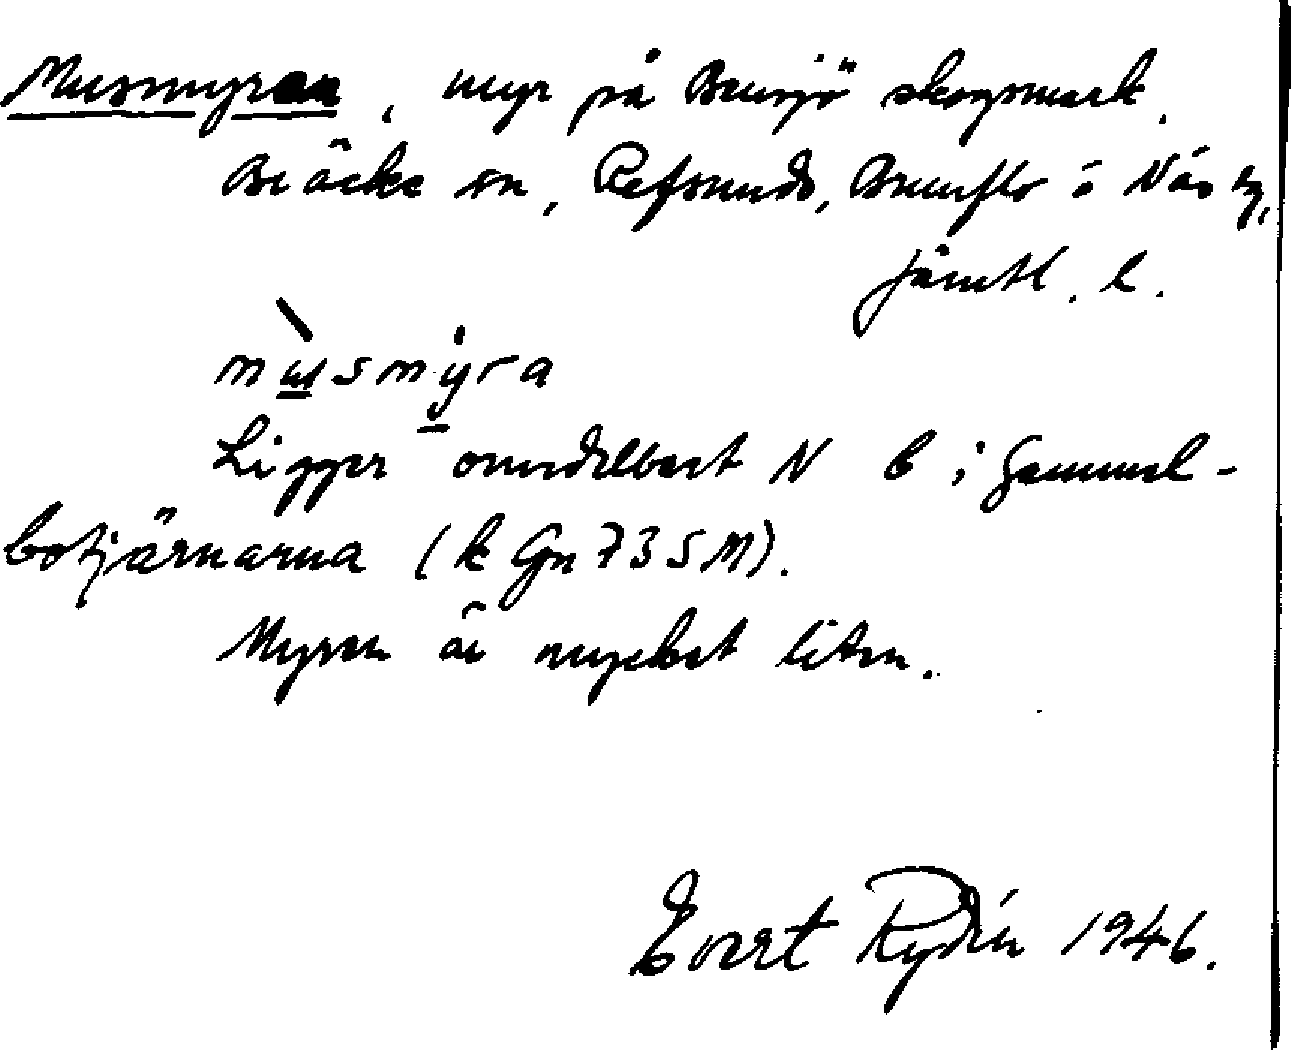 Musmyran, myr på Bensjö skogsmark.
Bräcke sn, Refsunds, Brunflo o Näs tg,
Jämtl. l.
musmyra
Ligger omedelbart N b i Gammel-
botjärnarna (k Gn 73 5 M).
Myren är mycket liten.
Evert Rydén 1946.